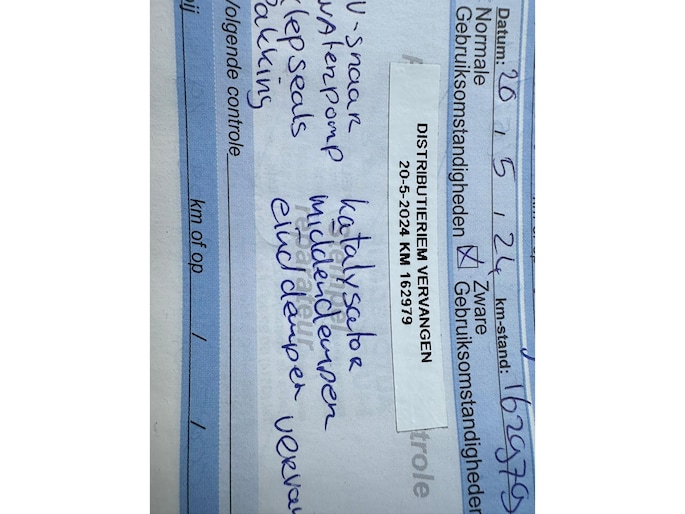 Datum: 20 / 5 / 24 km-stand: 162979
Normale
Gebruiksomstandigheden
Zware
Gebruiksomstandigheden
trole
DISTRIBUTIERIEM VERVANGEN
20-5-2024 KM 162979
stempel
reparateur
V-snaar
waterpomp
klepseals
pakking
katalysator
middendemper
einddemper
Volgende controle
bij km of op / /